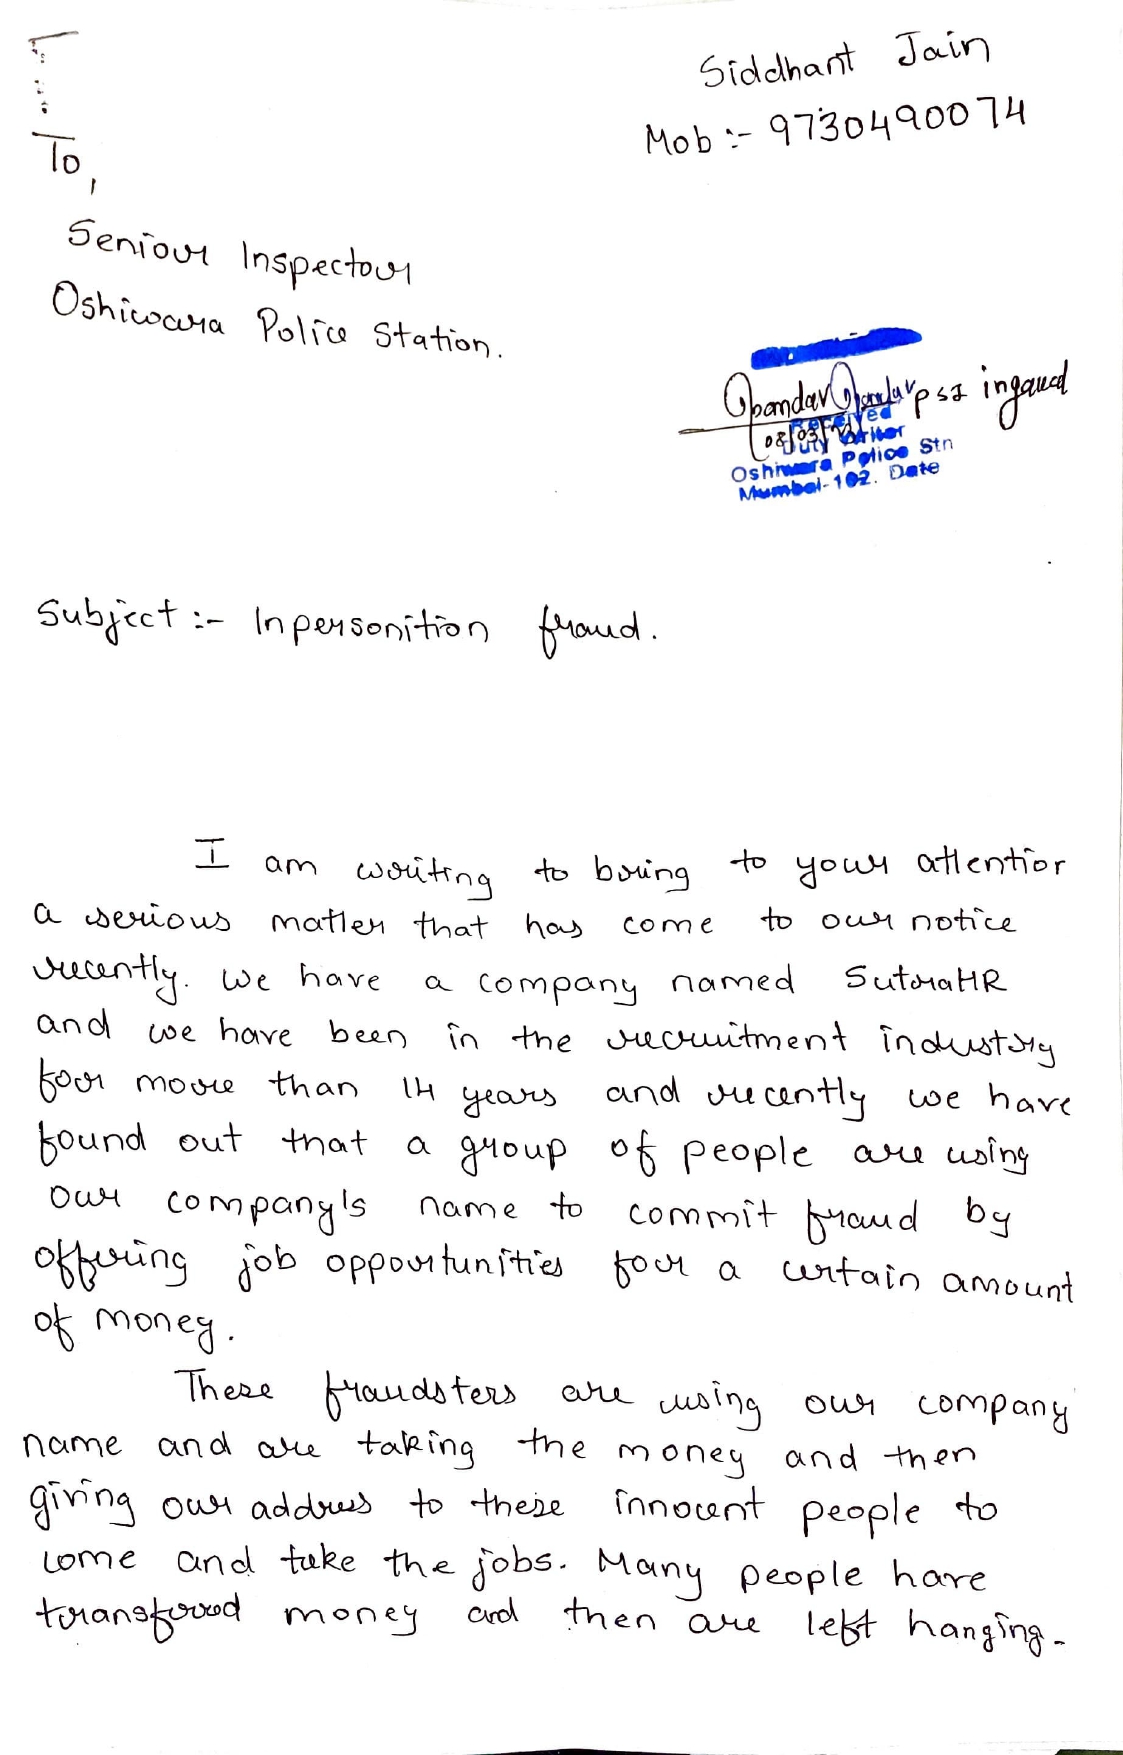 Siddhant Jain
Mob :- 9730490074
To,
Senior Inspector
Oshiwara Police Station.
psI ingaued
08/03/
Received
Duty Writer
Oshiwara Police Stn
Mumbai-102. Date
Subject :- Inpersonition fraud.
I am writing to bring to your attention
a serious matter that has come to our notice
recently. We have a company named SutraHR
and we have been in the recruitment industry
for more than 14 years and recently we have
found out that a group of people are using
our company's name to commit fraud by
offering job opportunities for a certain amount
of money.
These fraudsters are using our company
name and are taking the money and then
giving our address to these innocent people to
come and take the jobs. Many people have
transferred money and then are left hanging.